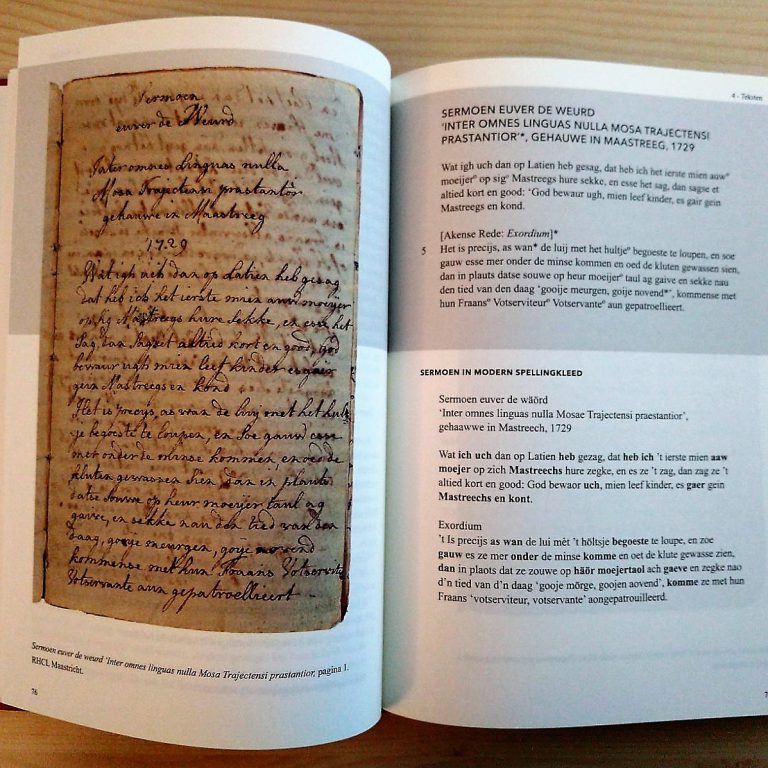 Sermoen
euver de Weurd
Inter omnes linguas nulla
Mosa Trajectensi prastantior
gehauwe in Maastreeg
1729
Wat igh uch dan op Latien heb gesag
dat heb ich het ierste mien auw moeijer
op sig Mastreegs hure sekke, en esse het
sag, dan sagse et altied kort en good, God
bewaur ugh mien leef kinder es gair
gein Mastreegs en kond
Het is precijs, as wan de luij met het hult-
je begoeste te loupen, en soe gauw esse
mer onder de minse kommen, en oed de
kluten gewassen sien, dan in plauts
datse souwe op heur moeijer taul ag
gaive, en sekke nau den tied van den
daag, gooije meurgen, goije novend
kommense met hun Fraans Votserviteur
Votservante aun gepatroellieert
Sermoen euver de weurd 'Inter omnes linguas nulla Mosa Trajectensi prastantior, pagina 1.
RHCL Maastricht.
76
4 - Teksten
SERMOEN EUVER DE WEURD
'INTER OMNES LINGUAS NULLA MOSA TRAJECTENSI
PRASTANTIOR'*, GEHAUWE IN MAASTREEG, 1729
Wat igh uch dan op Latien heb gesag, dat heb ich het ierste mien auwº
moeijerº op sigº Mastreegs hure sekke, en esse het sag, dan sagse et
altied kort en good: 'God bewaur ugh, mien leef kinder, es gair gein
Mastreegs en kond.
[Akense Rede: Exordium]*
5 Het is precijs, as wan* de luij met het hultjeº begoeste te loupen, en soe
gauw esse mer onder de minse kommen en oed de kluten gewassen sien,
dan in plauts datse souwe op heur moeijerº taul ag gaive en sekke nau
den tied van den daag 'gooije meurgen, goije novend*', kommense met
hun Fraansº Votserviteurº Votservanteº aun gepatroellieert.
SERMOEN IN MODERN SPELLINGKLEED
Sermoen euver de wäörd
'Inter omnes linguas nulla Mosae Trajectensi praestantior',
gehaawwe in Mastreech, 1729
Wat ich uch dan op Latien heb gezag, dat heb ich 't ierste mien aaw
moejer op zich Mastreechs hure zegke, en es ze 't zag, dan zag ze 't
altied kort en good: God bewaor uch, mien leef kinder, es gaer gein
Mastreechs en kont.
Exordium
't Is precijs as wan de lui mèt 't höltsje begoeste te loupe, en zoe
gauw es ze mer onder de minse komme en oet de klute gewasse zien,
dan in plaots dat ze zouwe op häör moejertaol ach gaeve en zegke nao
d'n tied van d'n daag 'gooje mörge, goojen aovend', komme ze met hun
Fraans 'votserviteur, votservante' aongepatrouilleerd.